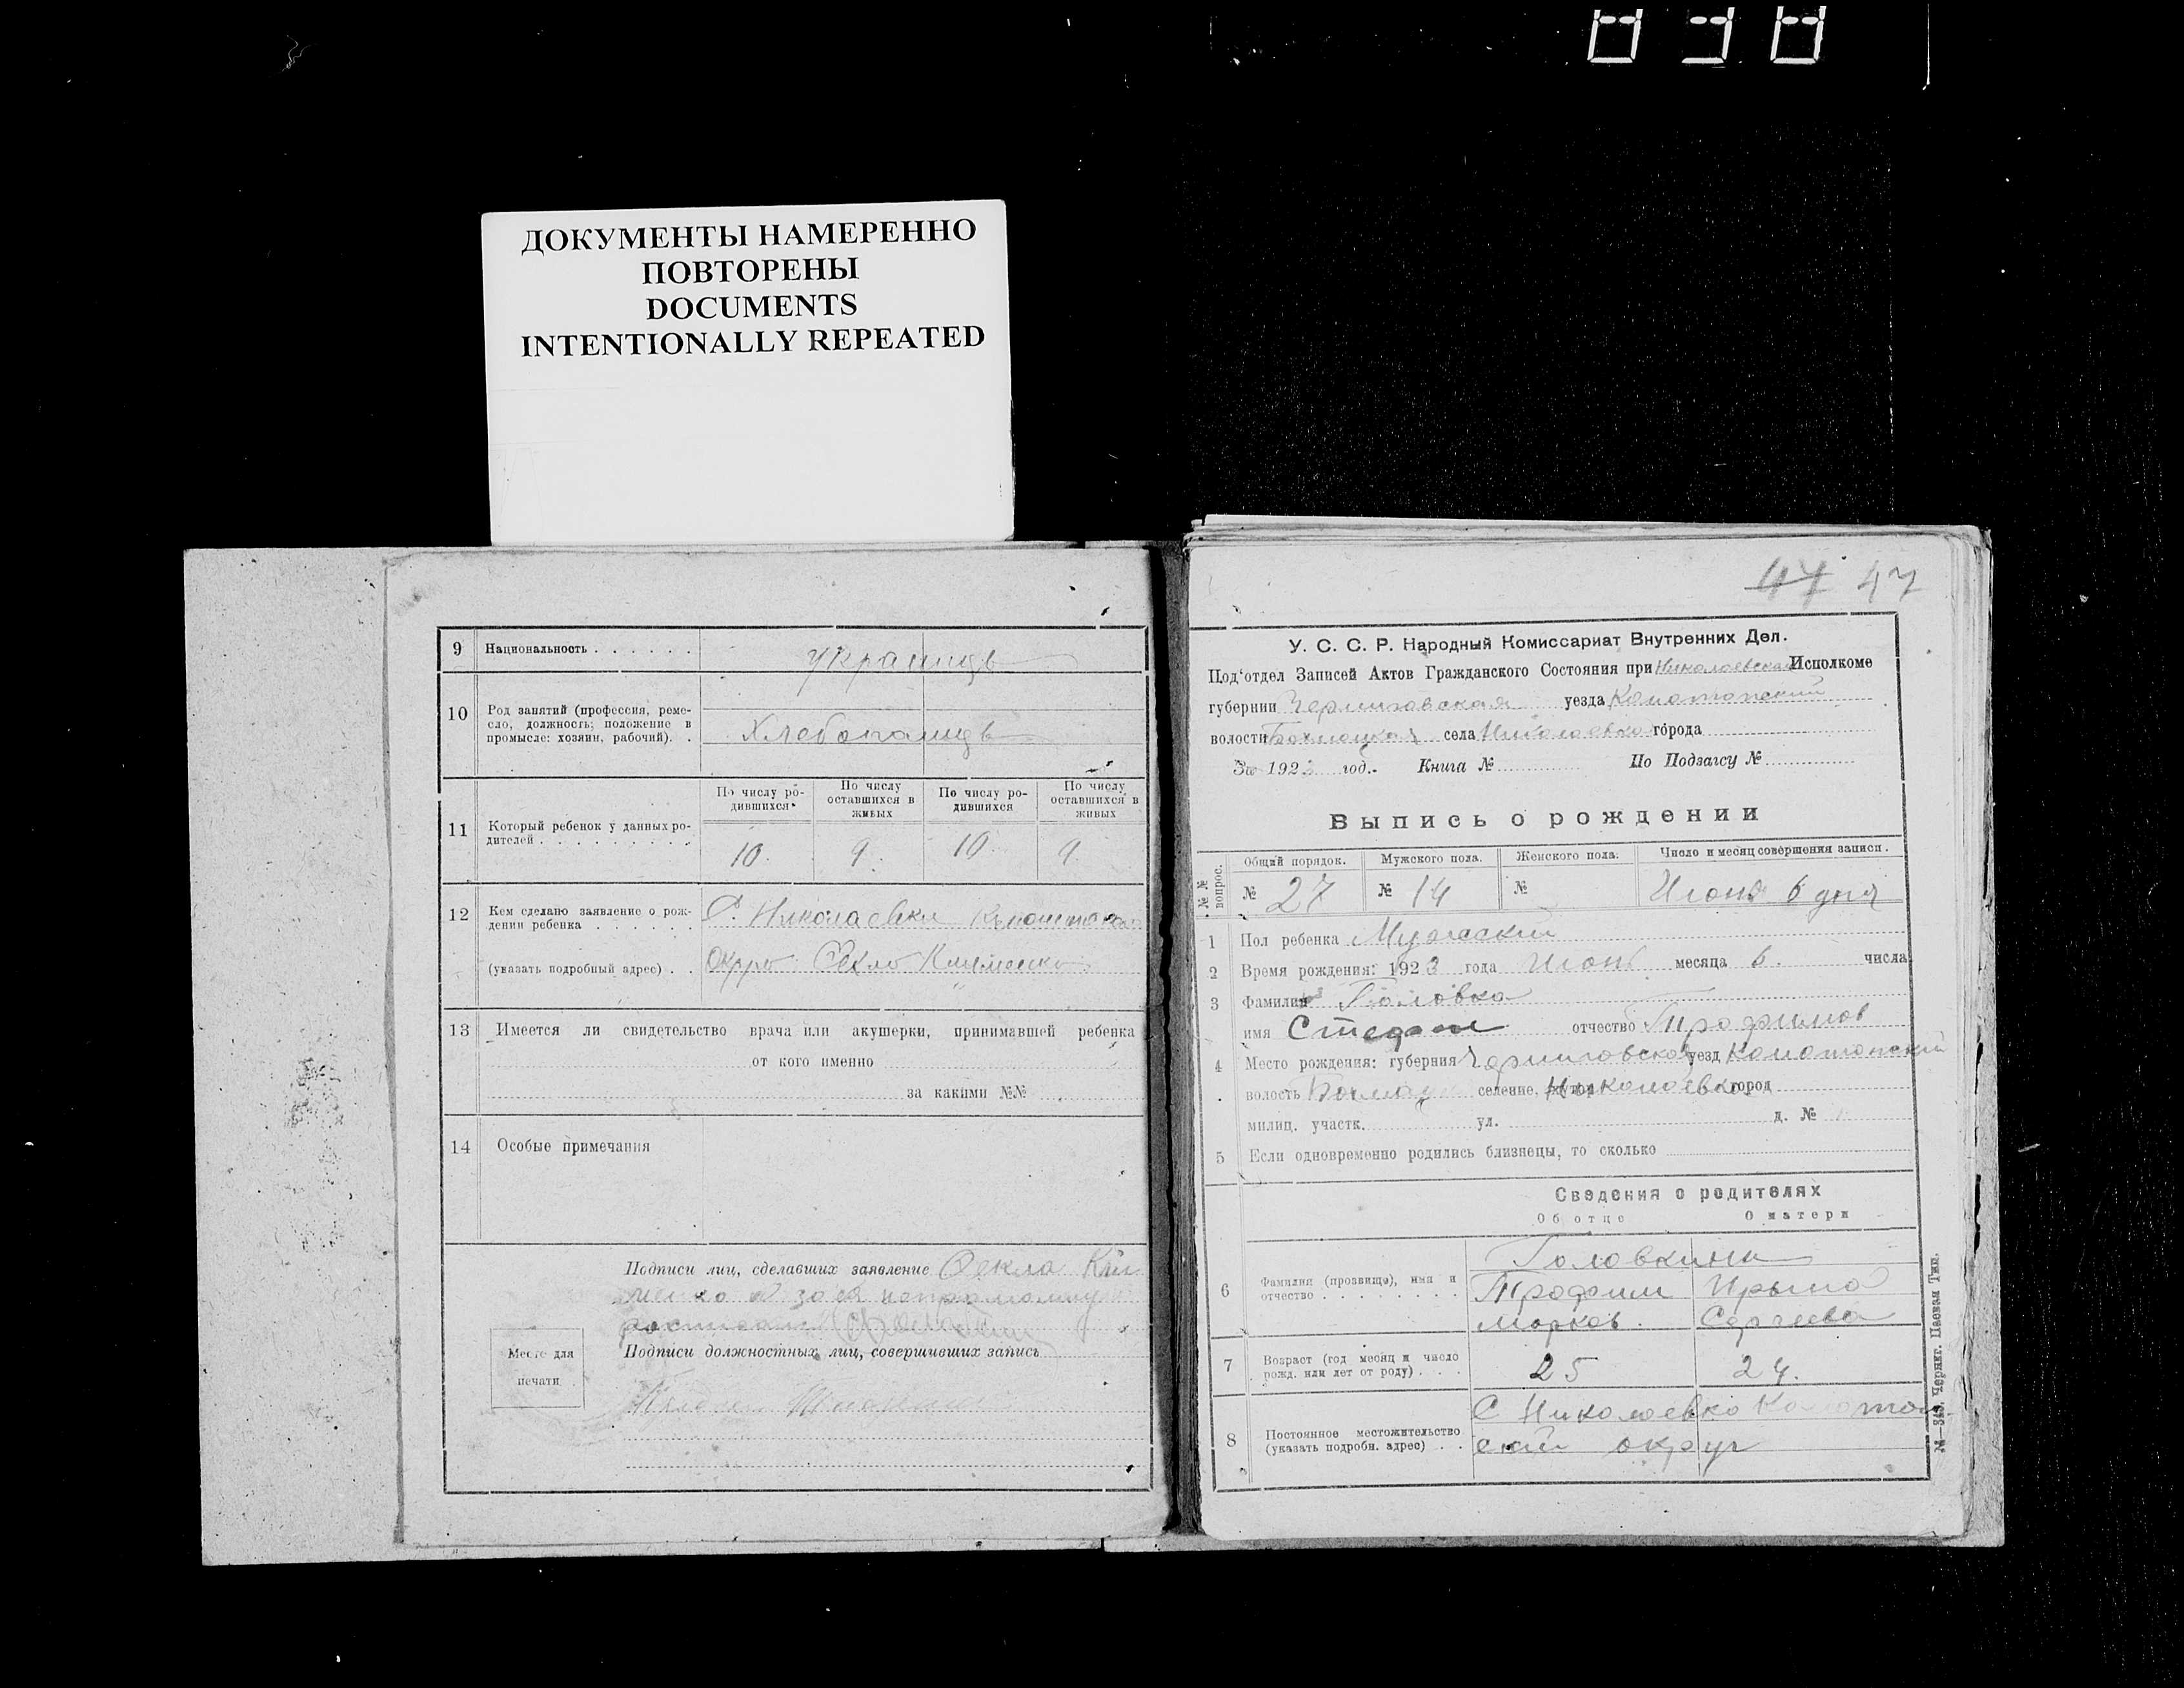 ДОКУМЕНТЫ НАМЕРЕННО
ПОВТОРЕНЫ
DOCUMENTS
INTENTIONALLY REPEATED
9 Национальность украинцъ
10 Род занятий (профессия, реме-
сло, должность; положение в
промысле: хозяин, рабочий).
Хлебопашцъ
11 Который ребенок у данных ро-
дителей
По числу ро-
дившихся
По числу
оставшихся в
живых
По числу ро-
дившихся
По числу
оставшихся в
живых
10. 9. 10. 9.
12 Кем сделано заявление о рож-
дении ребенка
С. Николаевки
(указать подробный адрес)
13 Имеется ли свидетельство врача или акушерки, принимавшей ребенка
от кого именно
за какими №№
14 Особые примечания
Подписи лиц, сделавших заявление Фекла
Место для
печати
Подписи должностных лиц, совершивших запись
47 47
У. С. С. Р. Народный Комиссариат Внутренних Дел.
Под‘отдел Записей Актов Гражданского Состояния при Николаевском Исполкоме
губернии Черниговская уезда Конотопский
волости села Николаевка города
За 1923 год. Книга № По Подзагсу №
Выпись о рождении
№№ вопрос.
Общий порядок. Мужского пола. Женского пола. Число и месяц совершения записи.
№ 27 № 14 № Июня 6 дня
1 Пол ребенка Мужской
2 Время рождения: 1923 года Июня месяца 6. числа
3 Фамилия Головка
имя Стефан отчество Трофимов
4 Место рождения: губерния Черниговская уезд Конотопский
волость селение, Николаевка город
милиц. участк. ул. д. №
5 Если одновременно родились близнецы, то сколько
Сведения о родителях
Об отце О матери
6 Фамилия (прозвище), имя и
отчество
Головкины
Трофим Ирына
Марков. Сергеева
7 Возраст (год месяц и число
рожд. или лет от роду)
25 24.
8 Постоянное местожительство
(указать подробн. адрес)
С Николаевка Конотоп
ский округ
№—349. Черниг. Паевая Тип.